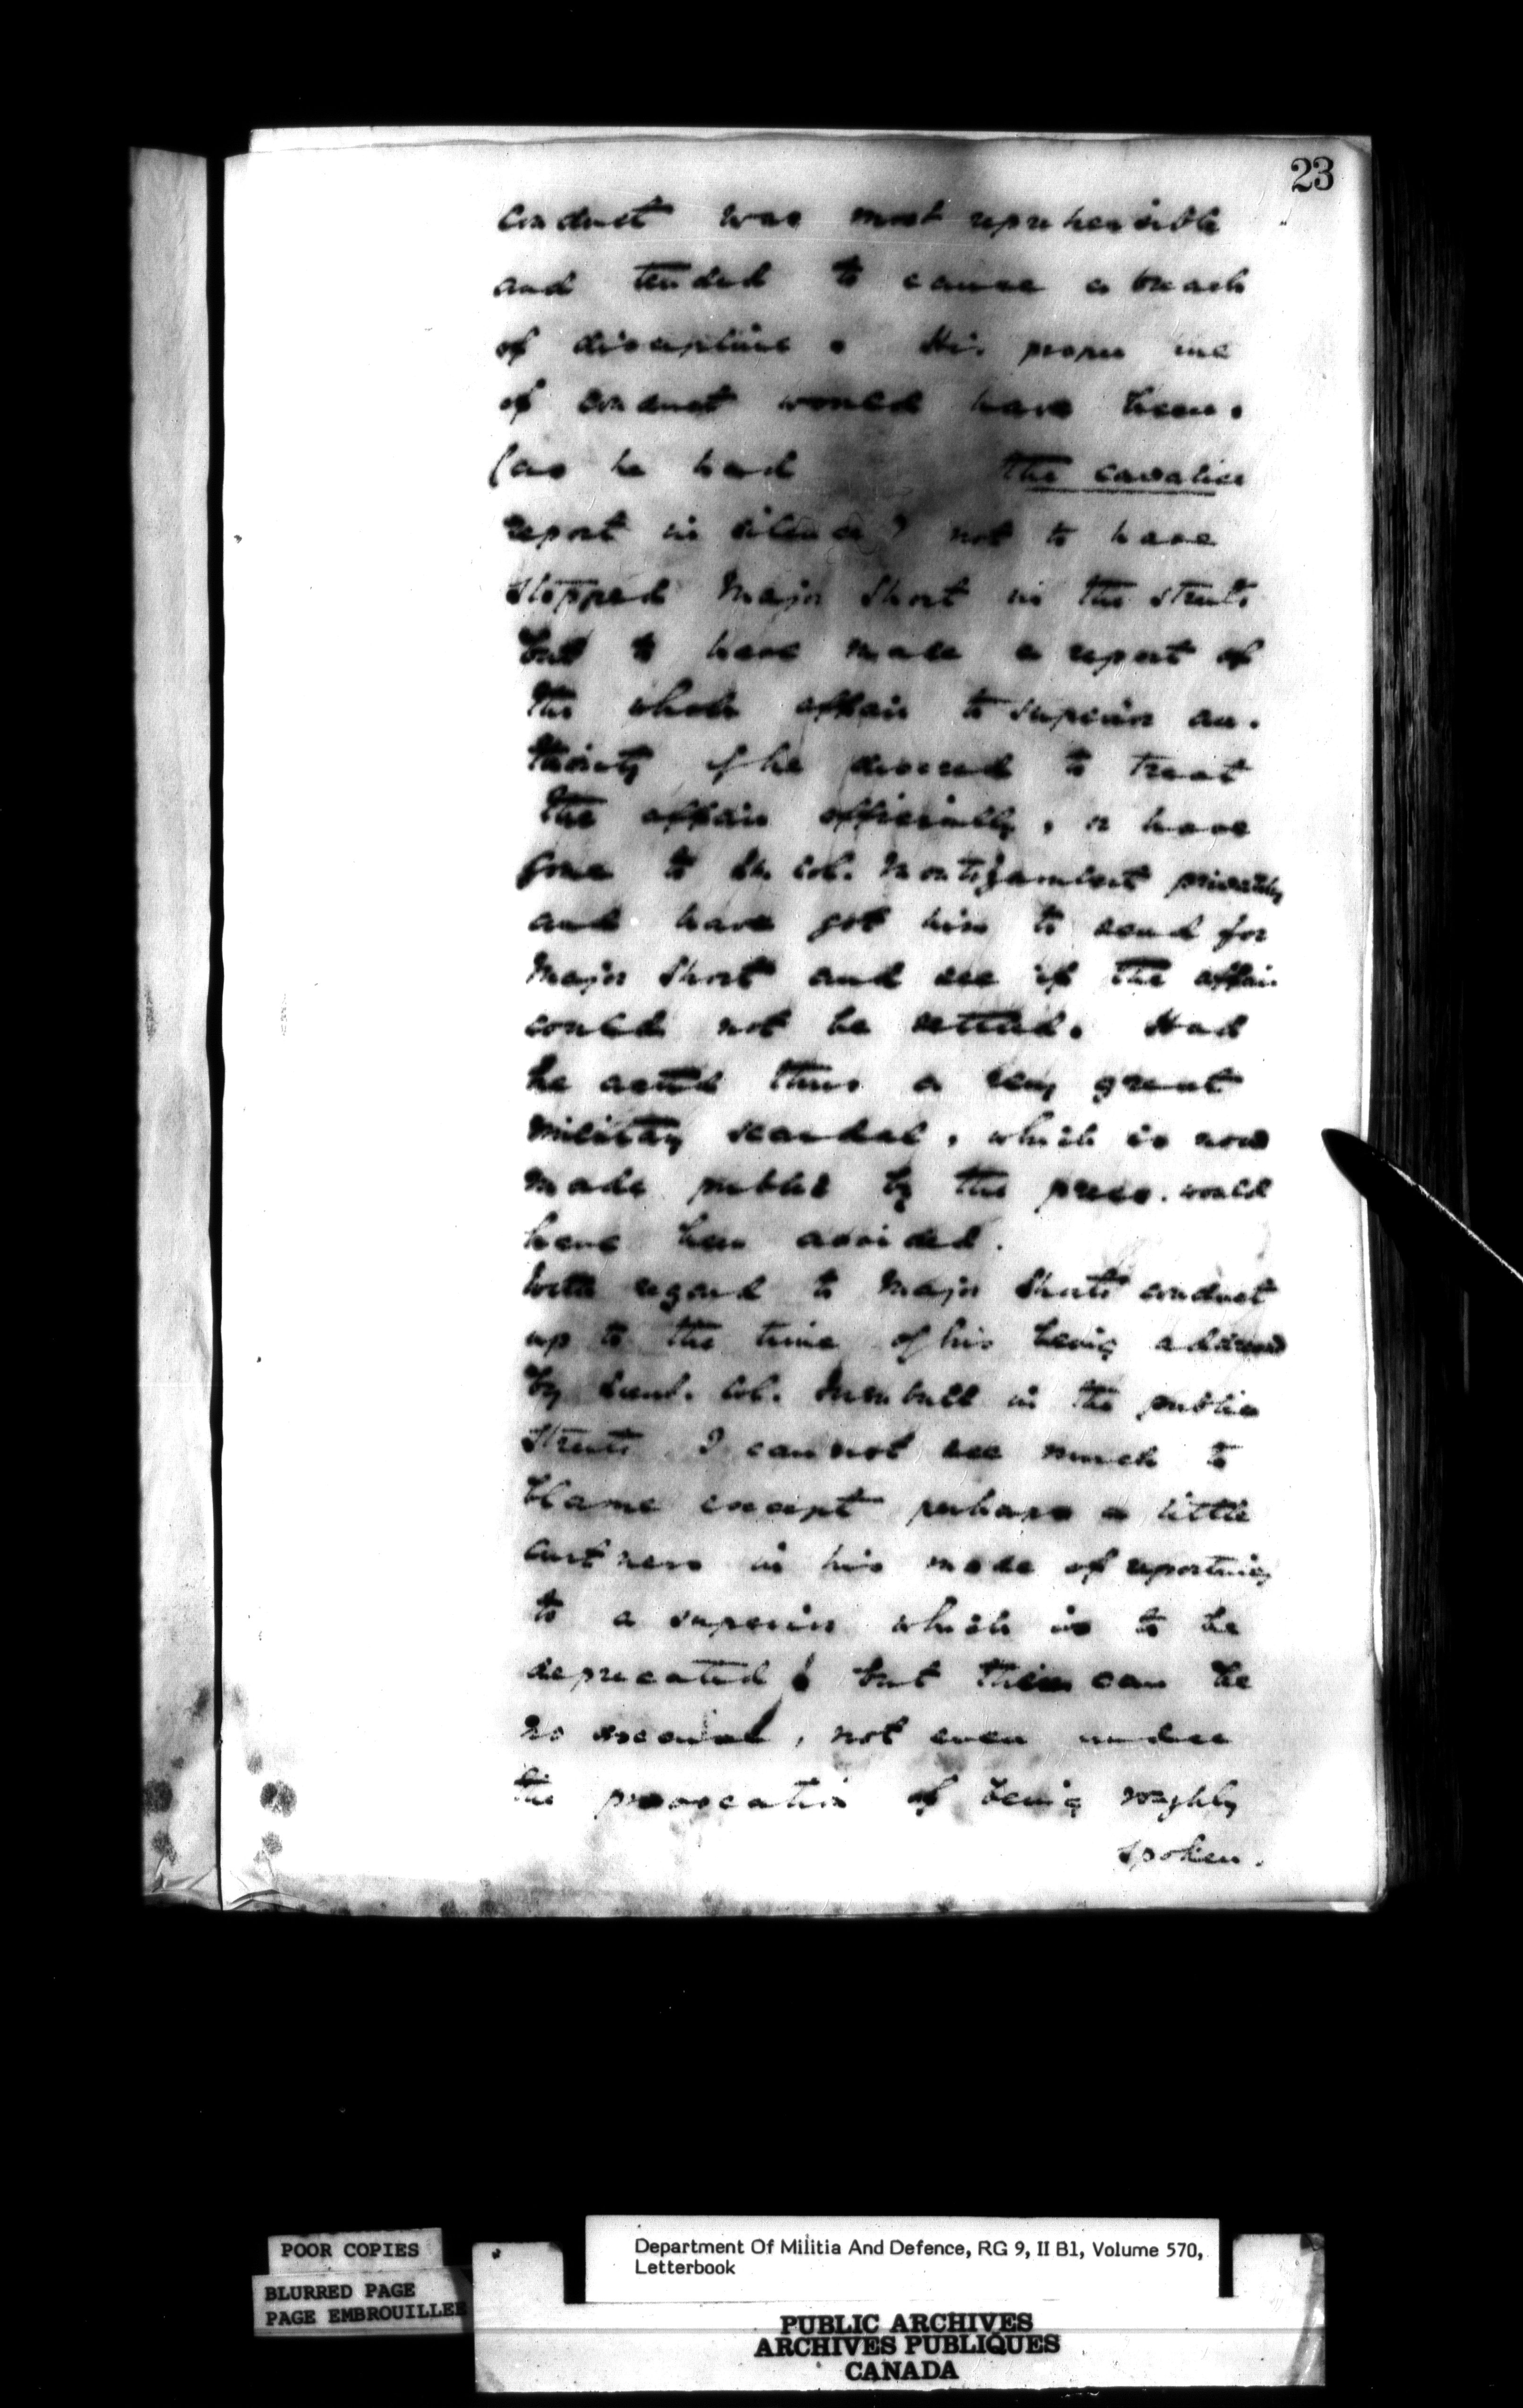 23
conduct was most reprehensible
and tended to cause a breach
of discipline. His proper line
of conduct would have been.
(as he had the cavalier
report in silence) not to have
stopped Major Short in the streets
but to have made a report of
the whole affair to superior au.
thority if he desired to treat
the affair officially, or have
gone to Lt. Col. Montizambert privately
and have got him to send for
Major Short and see if the affair
could not be settled. Had
he acted thus a very great
military scandal, which is now
made public by the press. would
have been avoided.
With regard to Major Short's conduct
up to the time of his being addressed
by Lieut. Col. Turnbull in the public
Streets I cannot see much to
blame except perhaps a little
curtness in his mode of reporting
to a superior which is to be
deprecated, but there can be
no , not even under
the provocation of being roughly
spoken.
POOR COPIES
BLURRED PAGE
PAGE EMBROUILLEE
Department Of Militia And Defence, RG 9, II B1, Volume 570,
Letterbook
PUBLIC ARCHIVES
ARCHIVES PUBLIQUES
CANADA